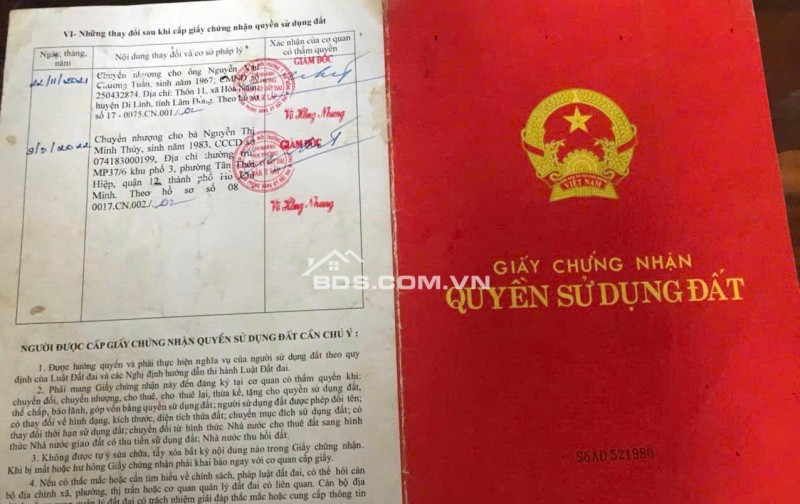 VI- Những thay đổi sau khi cấp giấy chứng nhận quyền sử dụng đất
Ngày, tháng, năm
Nội dung thay đổi và cơ sở pháp lý
Xác nhận của cơ quan có thẩm quyền
22/11/2021
Chuyển nhượng cho ông Nguyễn Văn
Chương Tuấn, sinh năm 1967, CMND số
250432874. Địa chỉ: Thôn 11, xã Hòa Nam,
huyện Di Linh, tỉnh Lâm Đồng. Theo hồ sơ
số 17 - 0075.CN.001/.02
GIÁM ĐỐC
Võ Hồng Nhung
9/5/2022
Chuyển nhượng cho bà Nguyễn Thị
Minh Thúy, sinh năm 1983, CCCD số
074183000199, Địa chỉ thường trú
MP37/6 khu phố 3, phường Tân Thới
Hiệp, quận 12, thành phố Hồ Chí
Minh. Theo hồ sơ số 08
0017.CN.002/.02
GIÁM ĐỐC
Võ Hồng Nhung
BDS.COM.VN
NGƯỜI ĐƯỢC CẤP GIẤY CHỨNG NHẬN QUYỀN SỬ DỤNG ĐẤT CẦN CHÚ Ý :
1. Được hưởng quyền và phải thực hiện nghĩa vụ của người sử dụng đất theo quy
định của Luật Đất đai và các Nghị định hướng dẫn thi hành Luật Đất đai.
2. Phải mang Giấy chứng nhận này đến đăng ký tại cơ quan có thẩm quyền khi:
chuyển đổi, chuyển nhượng, cho thuê, cho thuê lại, thừa kế, tặng cho quyền sử dụng đất,
thế chấp, bảo lãnh, góp vốn bằng quyền sử dụng đất; người sử dụng đất được phép đổi tên;
có thay đổi về hình dạng, kích thước, diện tích thửa đất; chuyển mục đích sử dụng đất; có
thay đổi thời hạn sử dụng đất; chuyển đổi từ hình thức Nhà nước cho thuê đất sang hình
thức Nhà nước giao đất có thu tiền sử dụng đất; Nhà nước thu hồi đất.
3. Không được tự ý sửa chữa, tẩy xóa bất kỳ nội dung nào trong Giấy chứng nhận.
Khi bị mất hoặc hư hỏng Giấy chứng nhận phải khai báo ngay với cơ quan cấp giấy.
4. Nếu có thắc mắc hoặc cần tìm hiểu về chính sách, pháp luật đất đai, có thể hỏi cán
bộ địa chính xã, phường, thị trấn hoặc cơ quan quản lý đất đai có liên quan. Cán bộ địa
quản lý đất đai có trách nhiệm giải đáp thắc mắc hoặc cung cấp thông tin
VIỆT NAM
GIẤY CHỨNG NHẬN
QUYỀN SỬ DỤNG ĐẤT
Số AD 521980